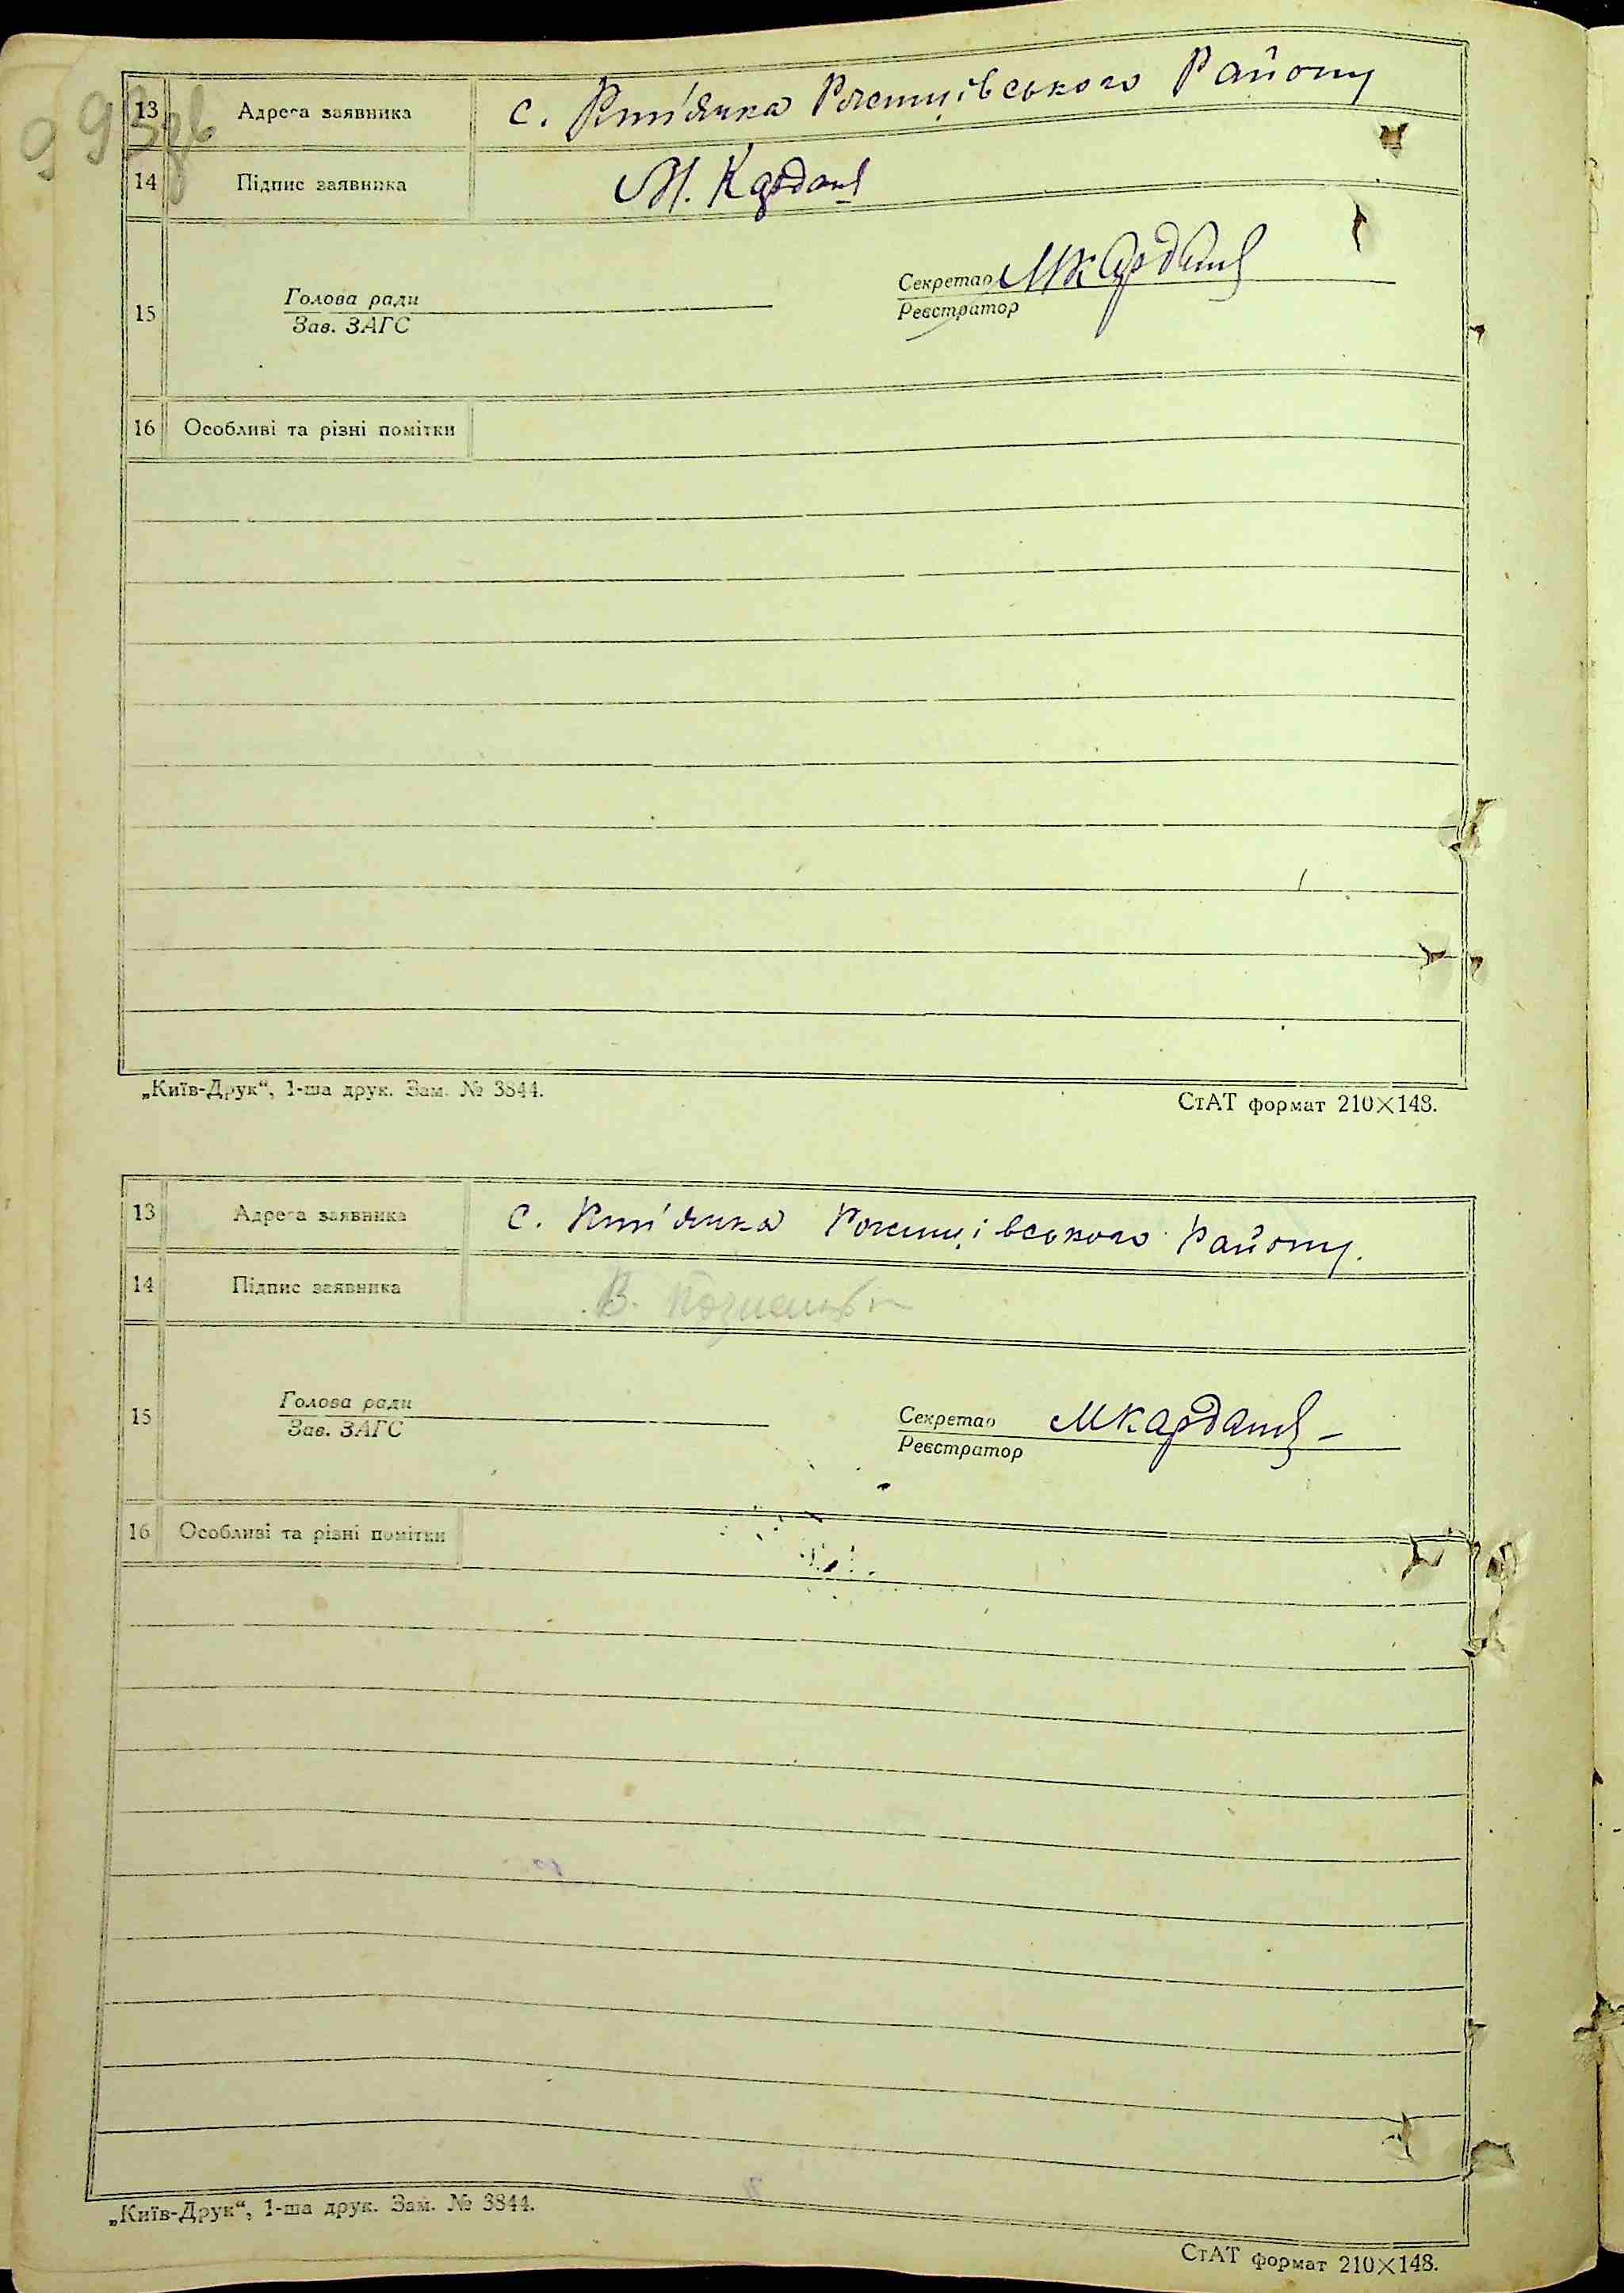 993зв
13 Адреса заявника с. Кут'янка Району
14 Підпис заявника М. Кардаш
Секретар МКардаш
15 Голова ради
Зав. ЗАГС
Реєстратор
16 Особливі та різні помітки
„Київ-Друк“, 1-ша друк. Зам. № 3844.
СтАТ формат 210×148.
13 Адреса заявника с. Кут'янка Району.
14 Підпис заявника В.
15 Голова ради
Зав. ЗАГС
Секретар МКардаш
Реєстратор
16 Особливі та різні помітки
„Київ-Друк“, 1-ша друк. Зам. № 3844.
СтАТ формат 210×148.